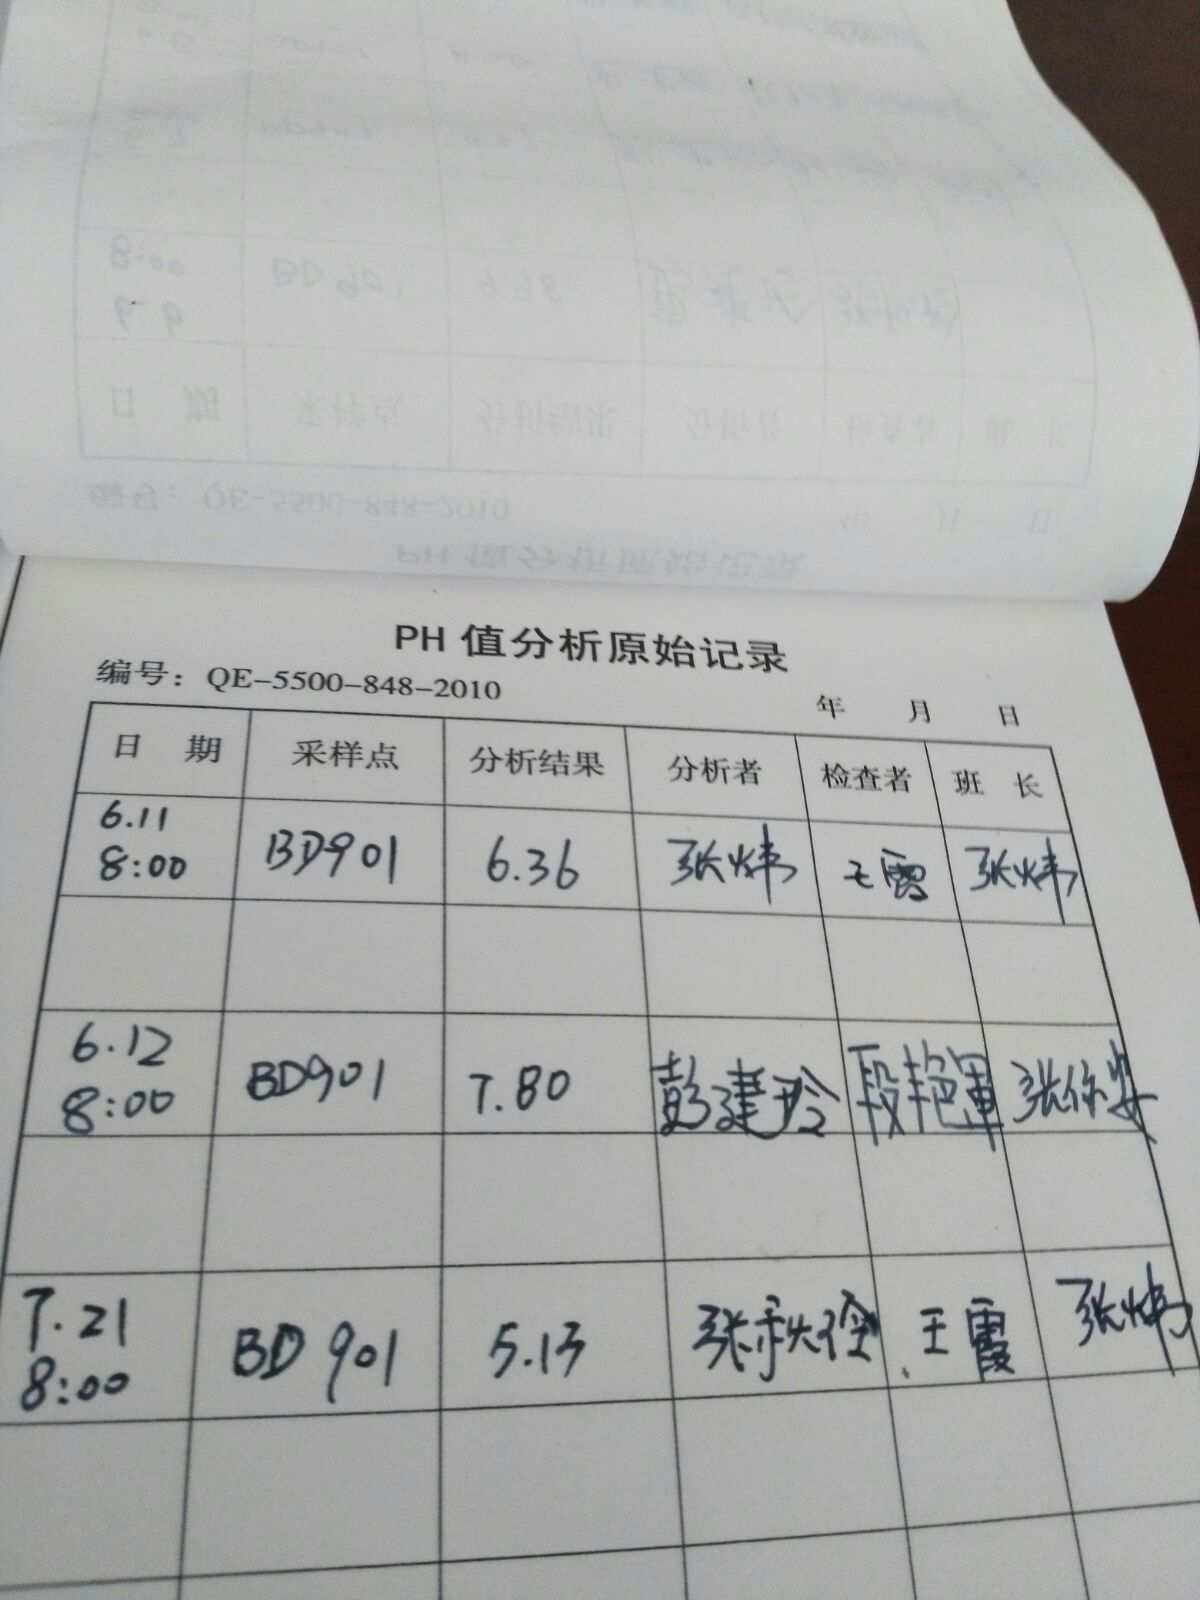 PH 值分析原始记录
编号：QE-5500-848-2010
年 月 日
日 期 采样点 分析结果 分析者 检查者 班 长
6.11
8:00 BD901 6.36 张炜 王霞 张炜
6.12
8:00 BD901 7.80 彭建玲 段艳军 张
7.21
8:00 BD901 5.13 张秋 王霞 张炜